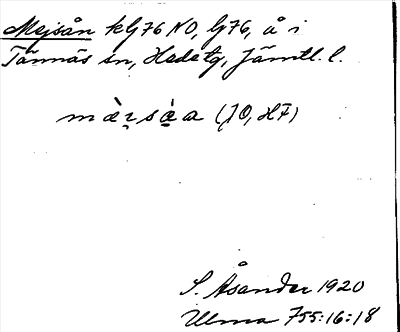 Mejsån kbl 76 NO, bl 76, å i
Tännäs sn, Hede tg, Jämtl. l.
mæ̀i̯så̱a (JO, HF)
S. Åsander 1920
Ulma 755:16:18